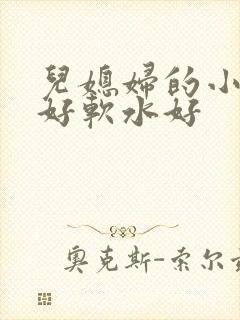 兒媳婦的小
好軟水好
奧克斯-索尔